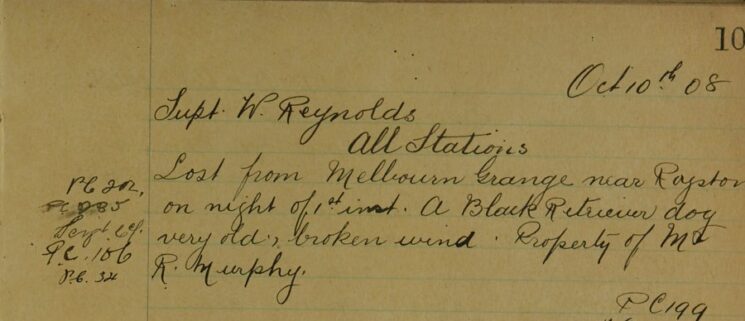 10
Oct 10th 08
Supt. W. Reynolds
All Stations
Lost from Melbourn Grange near Royston
on night of 1st inst. A Black Retriever dog
very old, broken wind. Property of Mr
R. Murphy.
P.C. 202.
Sergt
P.C. 106
P.C. 34
P C 199